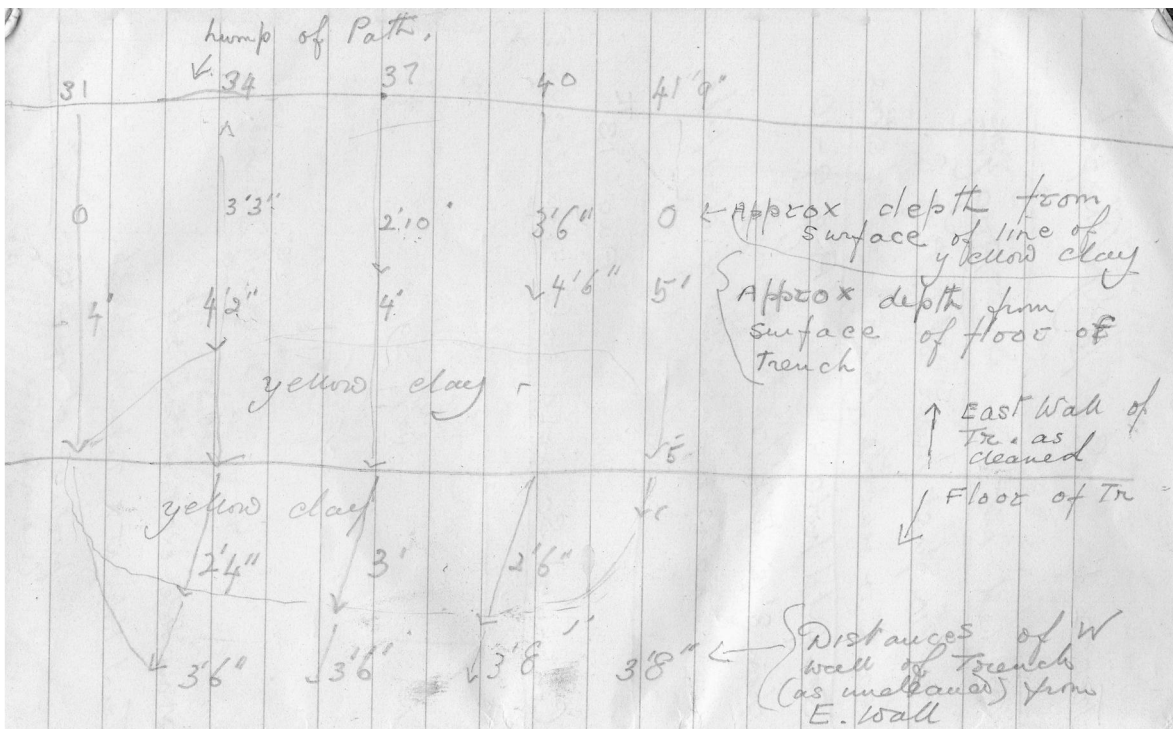 hump of Path.
31 34 37 40 41'9"
0 3'3" 2'10" 3'6" 0 ← Approx depth from
surface of line of
yellow clay
4' 4'2" 4' 4'6" 5' Approx depth from
surface of floor of
Trench
yellow clay
East Wall of
Tr. as
cleaned
5
Floor of Tr
yellow clay
2'4" 3' 2'6"
3'6" 3'6" 3'8" 3'8" ← Distances of W
wall of Trench
(as uncleaned) from
E. Wall